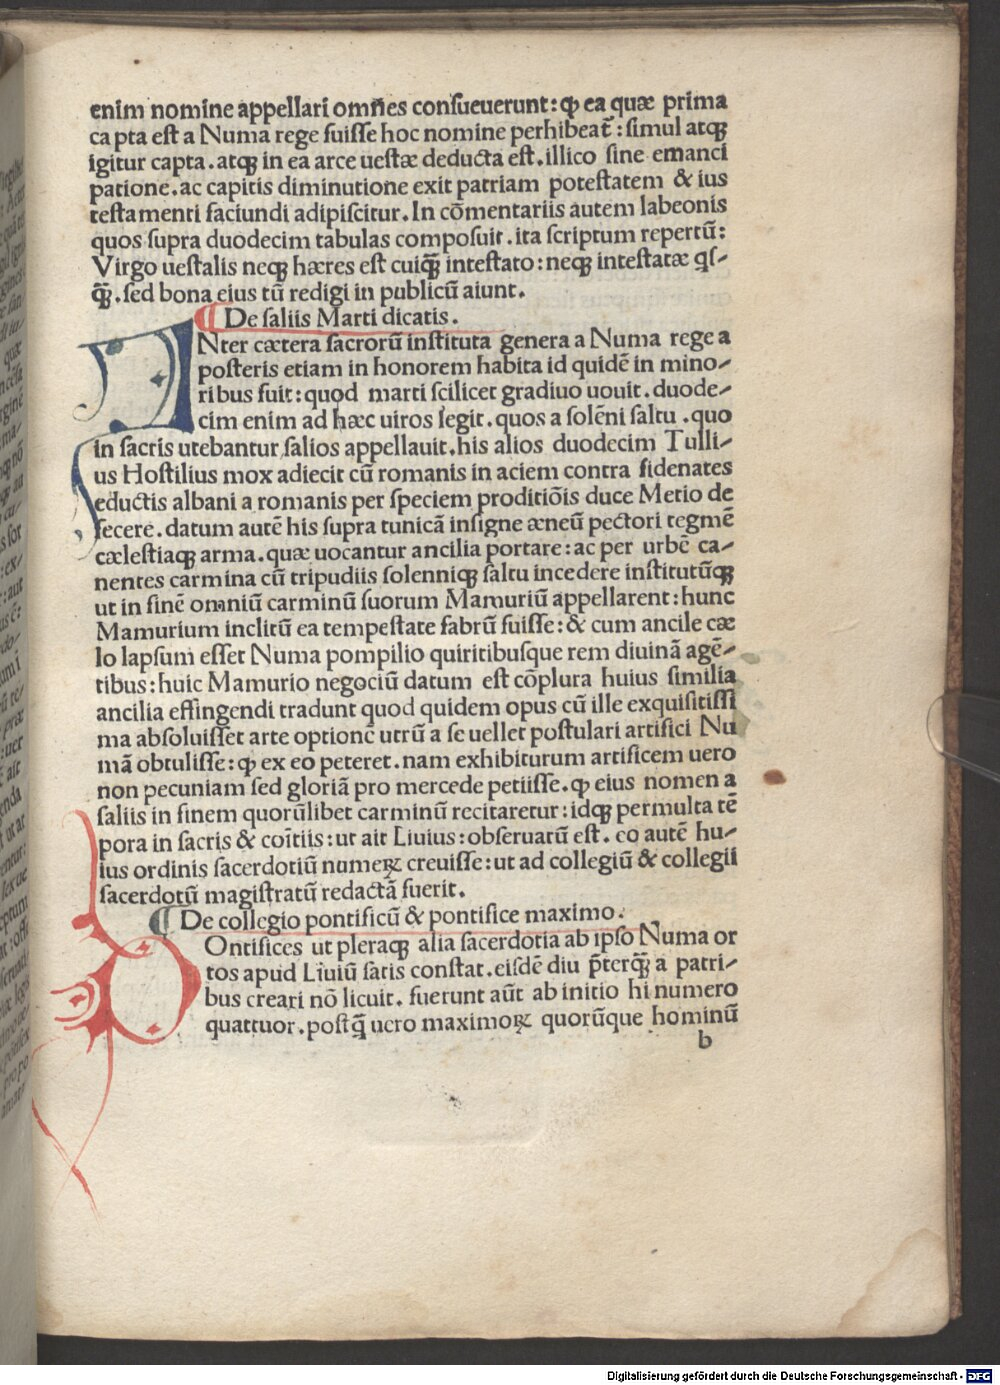 enim nomine appellari omn̄es consueuerunt: ꝙ ea quæ prima
capta est a Numa rege fuisse hoc nomine perhibeat̄: simul atqꝫ
igitur capta. atqꝫ in ea arce uestæ deducta est. illico sine emanci
patione. ac capitis diminutione exit patriam potestatem & ius
testamenti faciundi adipiscitur. In cōmentariis autem labeonis
quos supra duodecim tabulas composuit. ita scriptum repertū:
Virgo uestalis neqꝫ hæres est cuiqꝫ̄ intestato: neqꝫ intestatæ qs-
qꝫ̄. sed bona eius tū redigi in publicū aiunt.
¶ De saliis Marti dicatis.
INter cætera sacrorū instituta genera a Numa rege a
posteris etiam in honorem habita id quidē in mino-
ribus fuit: quod marti scilicet gradiuo uouit. duode-
cim enim ad hæc uiros legit. quos a solēni saltu. quo
in sacris utebantur salios appellauit. his alios duodecim Tulli-
us Hostilius mox adiecit cū romanis in aciem contra fidenates
eductis albani a romanis per speciem proditiōis duce Metio de
fecere. datum autē his supra tunicā insigne æneū pectori tegmē
cælestiaqꝫ arma. quæ uocantur ancilia portare: ac per urbē ca-
nentes carmina cū tripudiis solenniqꝫ saltu incedere institutūqꝫ
ut in finē omniū carminū suorum Mamuriū appellarent: hunc
Mamurium inclitū ea tempestate fabrū fuisse: & cum ancile cæ
lo lapsum esset Numa pompilio quiritibusque rem diuinā agē-
tibus: huic Mamurio negociū datum est cōplura huius similia
ancilia effingendi tradunt quod quidem opus cū ille exquisitissi
ma absoluisset arte optionē utrū a se uellet postulari artifici Nu
mā obtulisse: ꝙ ex eo peteret. nam exhibiturum artificem uero
non pecuniam sed gloriā pro mercede petiisse. ꝙ eius nomen a
saliis in finem quorūlibet carminū recitaretur: idqꝫ permulta tē
pora in sacris & coītiis: ut ait Liuius: obseruatū est. eo autē hu-
ius ordinis sacerdotiū numeꝝ creuisse: ut ad collegiū & collegii
sacerdotū magistratū redactā fuerit.
¶ De collegio pontificū & pontifice maximo.
POntifices ut pleraqꝫ alia sacerdotia ab ipso Numa or
tos apud Liuiū satis constat. eisdē diu p̄terqꝫ̄ a patri-
bus creari nō licuit. fuerunt aūt ab initio hi numero
quattuor. postq̄ uero maximoꝝ quorūque hominū
b
Digitalisierung gefördert durch die Deutsche Forschungsgemeinschaft - DFG